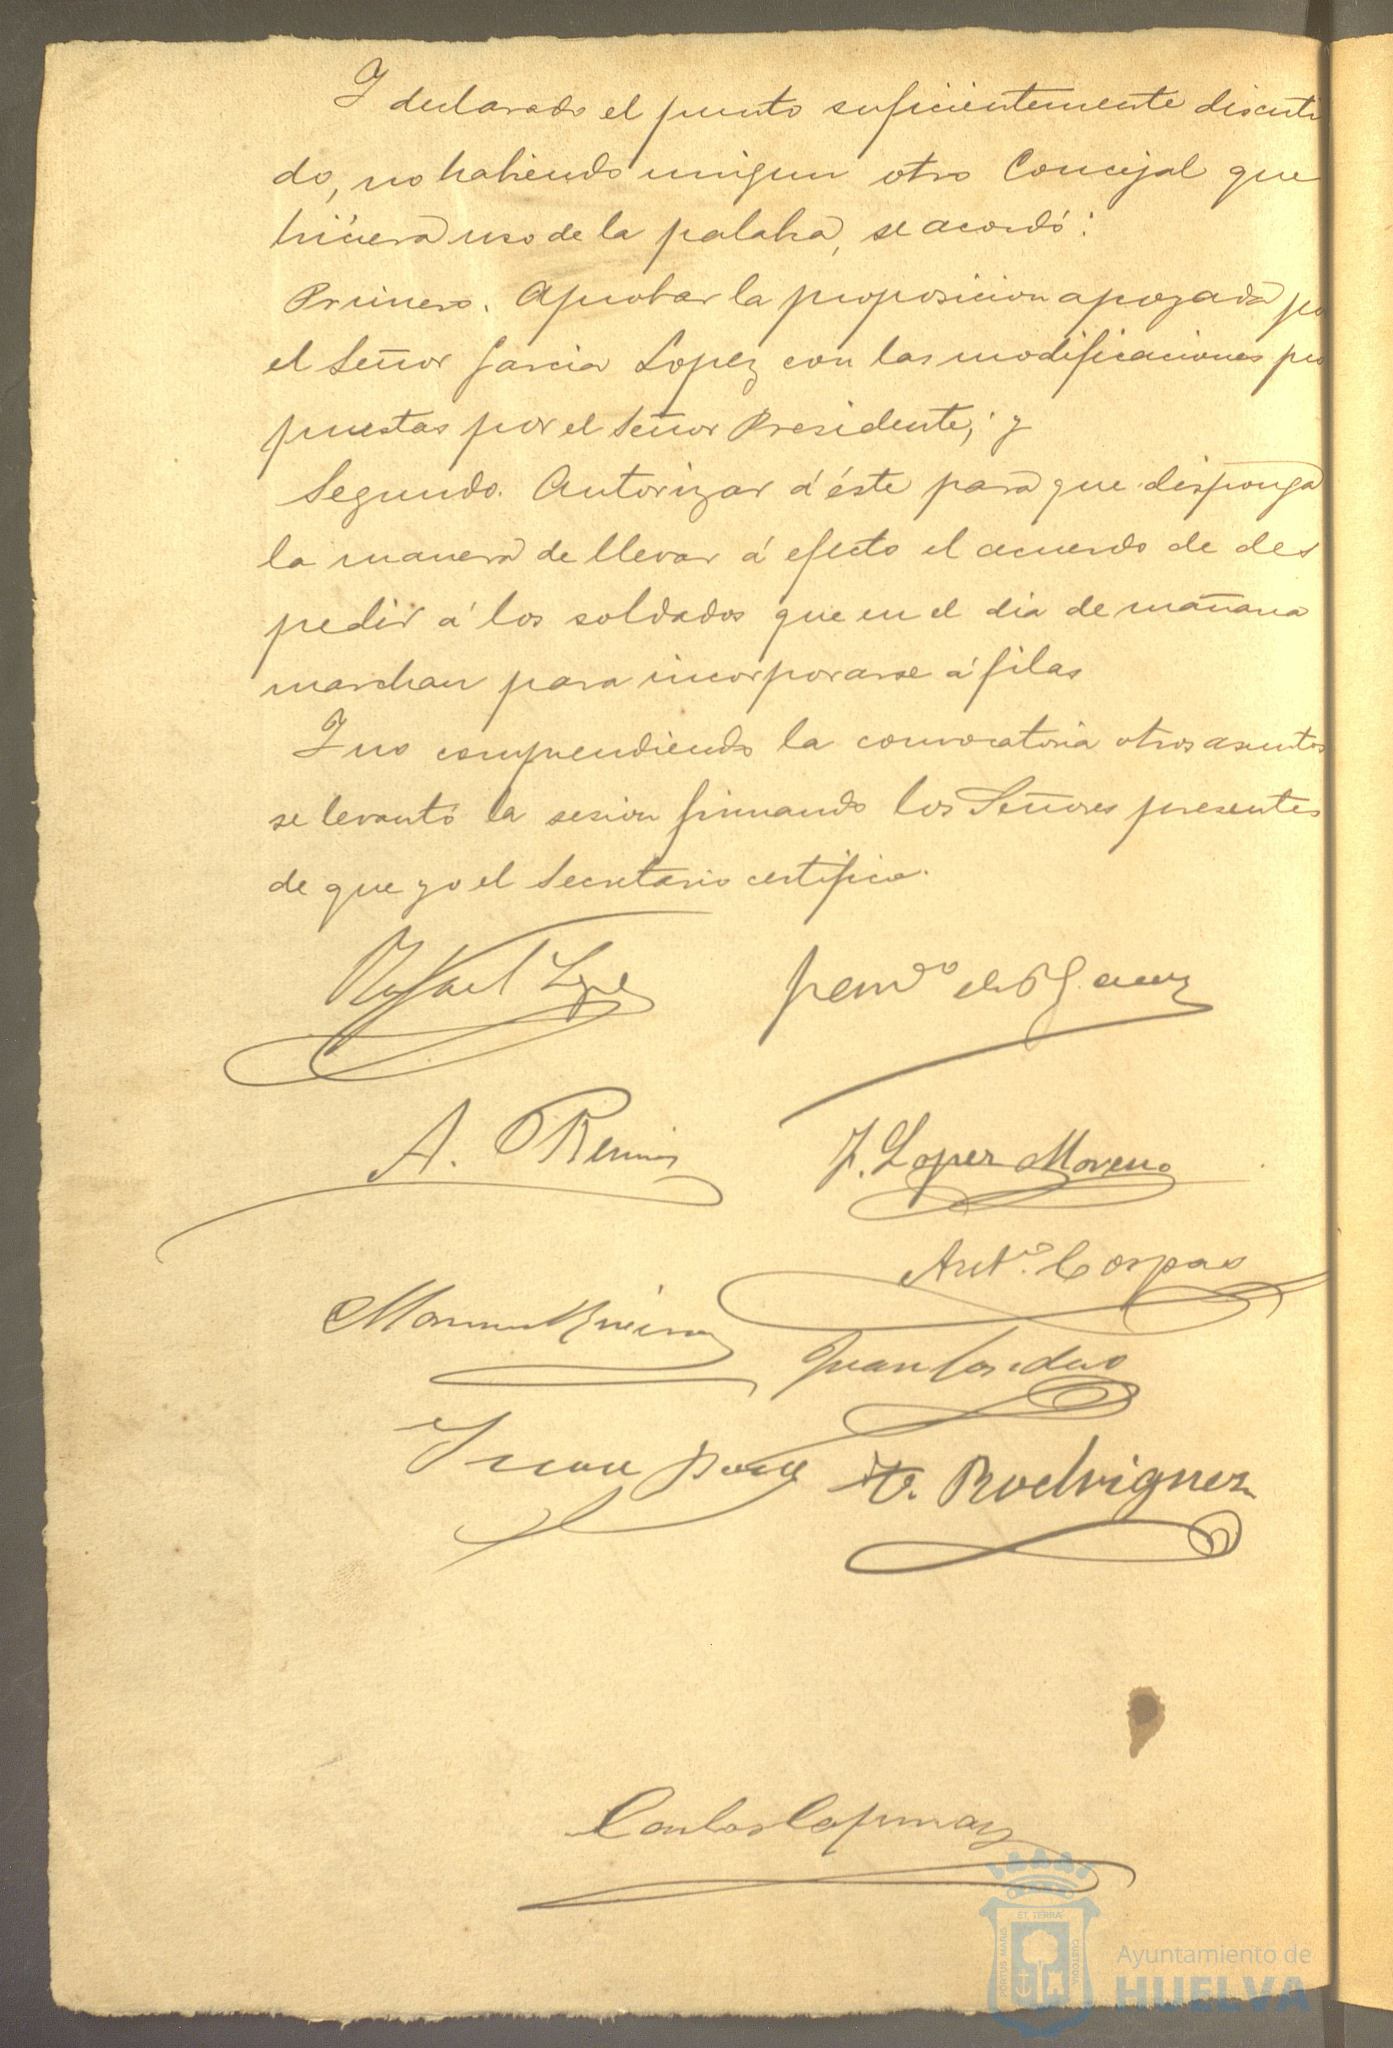 Y declarado el punto suficientemente discuti
do, no habiendo ningun otro Concejal que
hiciera uso de la palabra, se acordó:
Primero. Aprobar la proposicion apoyada po
el Señor Garcia Lopez con las modificaciones pro
puestas por el Señor Presidente; y
Segundo. Autorizar á éste para que disponga
la manera de llevar á efecto el acuerdo de des
pedir á los soldados que en el dia de mañana
marchan para incorporarse á filas
Y no comprendiendo la convocatoria otros asuntos
se levantó la sesion firmando los Señores presentes
de que yo el Secretario certifico.
Rafael
A.
J. Lopez Moreno
Antº. Corpas
Juan
Rodriguez
Carlos
ET TERRA
PORTUS MARIS
CUSTODIA
Ayuntamiento de
HUELVA